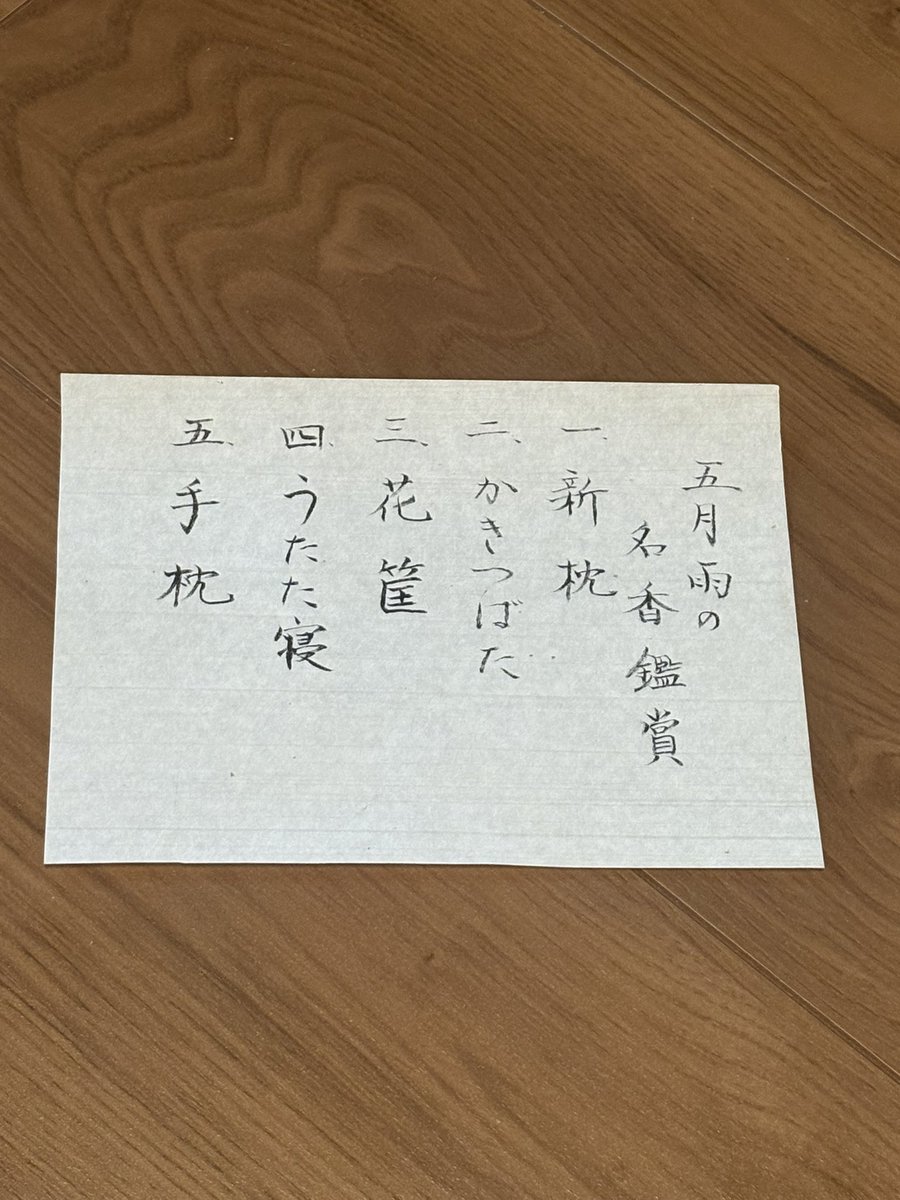 五月雨の
名香鑑賞
一、新枕
二、かきつばた
三、花筐
四、うたた寝
五、手枕